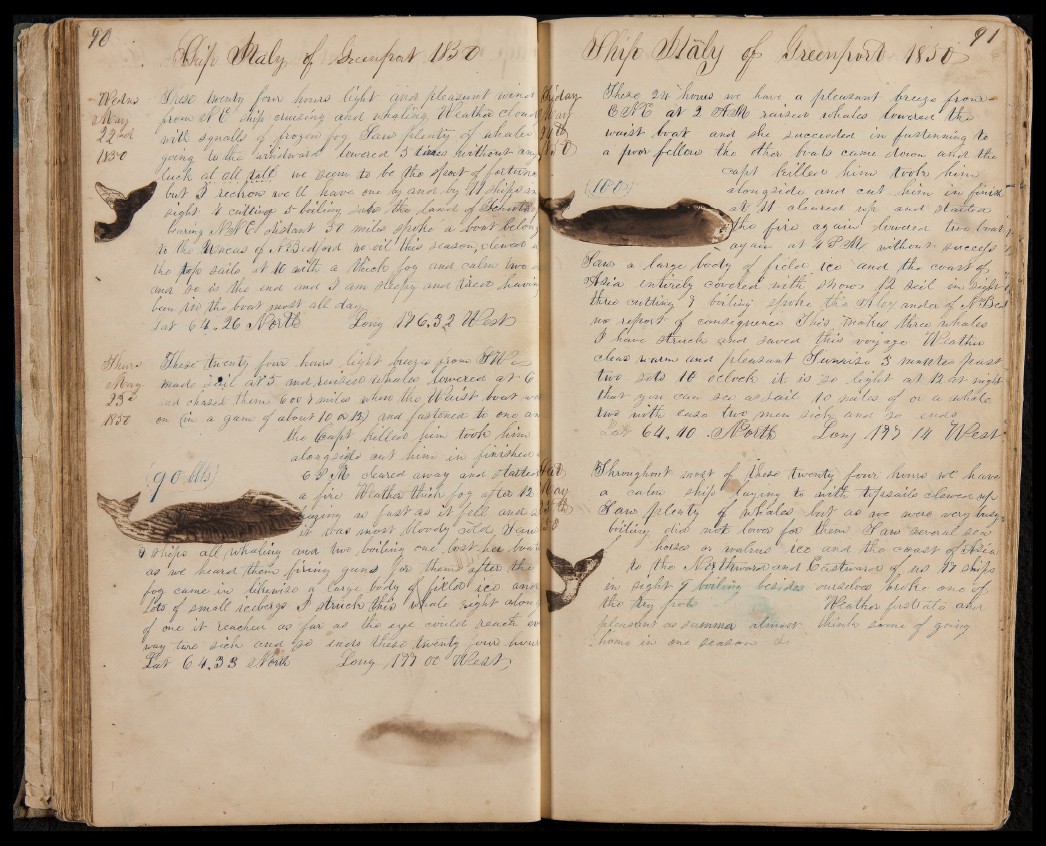 90
Ship Italy of Greenport 1850
Wedns
May
22nd
1850
These twenty four hours light and pleasant wind
from NE ship cruising and whaling Weather cloudy
with squalls of frozen fog Saw plenty of whales
going to the windward lowered 5 times without any
luck at all we seem to be the sport of fortune
but I reckon we'll have one by and by 11 ships in
sight 4 cutting 5 boiling the land of
bearing NNE distant 50 miles spoke a boat belong
to the of N Bedford no oil this season clewed
the top sails at 10 with a thick fog and calm two
and so is the end and I am sleepy and tired having
been in the boat most all day
Lat 64.26 North Long 176.32 West
Thurs
May
23d
1850
These twenty four hours light breeze from
made sail at 5 and raised whales lowered at 6
and chased them 6 or 7 miles when the Waist boat
on (in a game of about 10 or 12) and fastened to one an
the Capt killed him took him
alongside cut him in finished
6 PM cleared away and started
a fire Weather thick fog after 12
as fast as it fell and
it was most bloody cold Saw
9 ships all whaling and two boiling one lost her boat
as we heard them firing guns for them after the
fog came in likewise a large body of field ice and
Lots of small icebergs I struck this whale right along
of one it reached as far as the eye could reach
way two sick and so ends these twenty four hours
Lat 64.33 North Long 177 00 West
(90 bbls)
91
Ship Italy of Greenport 1850
Friday
May
24th
These 24 hours we have a pleasant breeze from
ENE at 2 AM raised whales lowered the
waist boat and she succeeded in fastening to
a poor fellow the other boats came down and the
capt killed him took him
alongside and cut him in finish
at 11 cleared up and started
the fire again lowered two boats
again at 4 PM without success
Saw a large body of field ice and the coast of
Asia entirely covered with snow 12 sail in sight
three cutting 7 boiling spoke the of N Bed
no report of consequence This makes three whales
I have struck and saved this voyage Weather
clear warm and pleasant Sunrise 3 minutes past
two sets 10 oclock it is so light at 12 at night
that you can see a sail 10 miles of or a whale
two with ease two men sick and so ends
Lat 64.40 North Long 177 14 West
Sat
May
25th
Throughout most of these twenty four hours we have
a calm ship laying to with topsails clewed up
Saw plenty of whales but as we were very busy
boiling did not lower for them Saw several sea
horses or walrus ice and the coast of Asia
to the Northward and Eastward of us 17 ships
in sight 7 boiling besides ourselves broke one of
the try pots Weather first rate and
pleasant as summer almost think some of going
home in one season